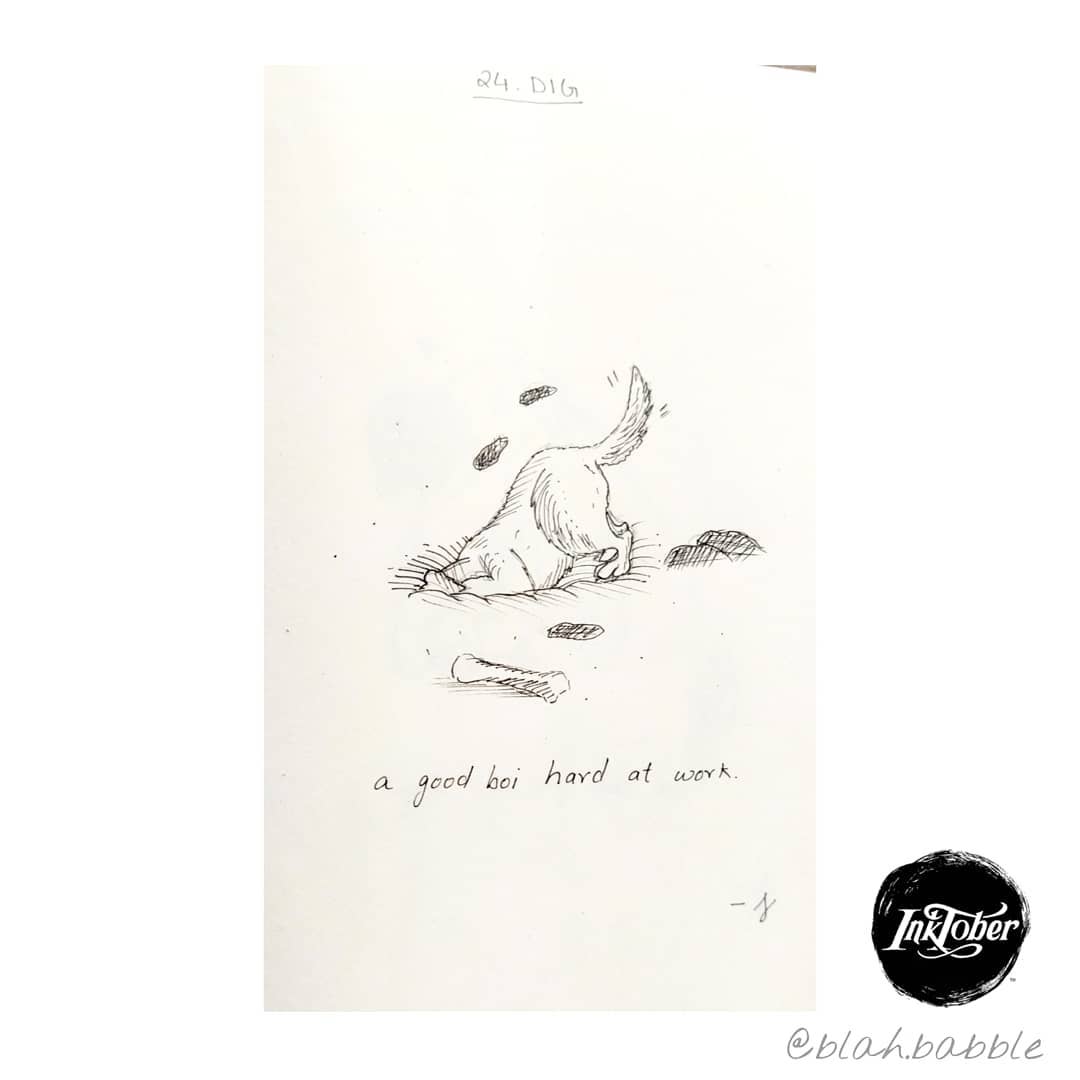 24. DIG
a good boi hard at work.
InkTober
@blah.babble